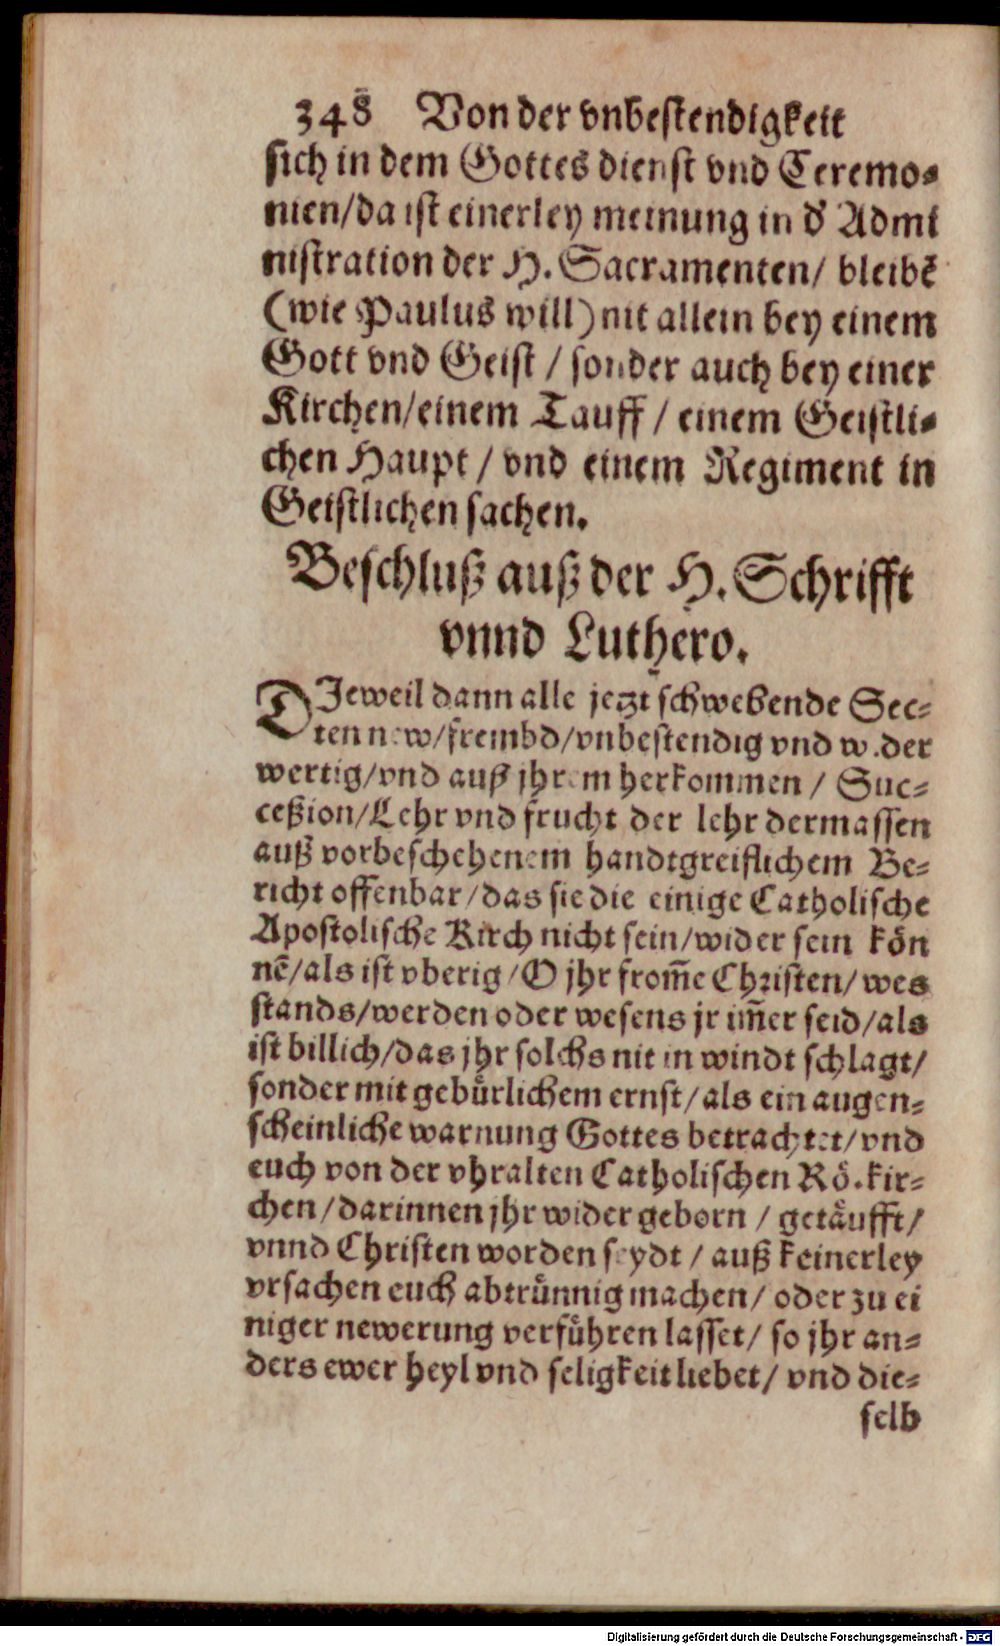 348 Von der vnbestendigkeit
sich in dem Gottes dienst vnd Ceremo-
nien/da ist einerley meinung in d' Admi
nistration der H. Sacramenten/ bleibē
(wie Paulus will) nit allein bey einem
Gott vnd Geist / sonder auch bey einer
Kirchen/einem Tauff / einem Geistli-
chen Haupt / vnd einem Regiment in
Geistlichen sachen.
Beschluß auß der H. Schrifft
vnnd Luthero.
DJeweil dann alle jetzt schwebende Sec-
ten new/frembd/vnbestendig vnd wider
wertig/vnd auß jhrem herkommen / Suc-
ceßion/Lehr vnd frucht der lehr dermassen
auß vorbeschehenem handtgreiflichem Be-
richt offenbar/das sie die einige Catholische
Apostolische Kirch nicht sein/wider sein kön
nē/als ist vberig/O jhr from̄e Christen/wes
stands/werden oder wesens jr im̄er seid/als
ist billich/das jhr solchs nit in windt schlagt/
sonder mit gebürlichem ernst/als ein augen-
scheinliche warnung Gottes betrachtet/vnd
euch von der vhralten Catholischen Rö. kir-
chen/darinnen jhr wider geborn / getäufft/
vnnd Christen worden seydt / auß keinerley
vrsachen euch abtrünnig machen/ oder zu ei
niger newerung verführen lasset/ so jhr an-
ders ewer heyl vnd seligkeit liebet/ vnd die-
selb
Digitalisierung gefördert durch die Deutsche Forschungsgemeinschaft - DFG